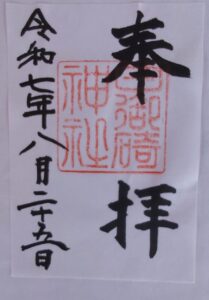 奉拝
御碕神社
令和七年八月二十五日